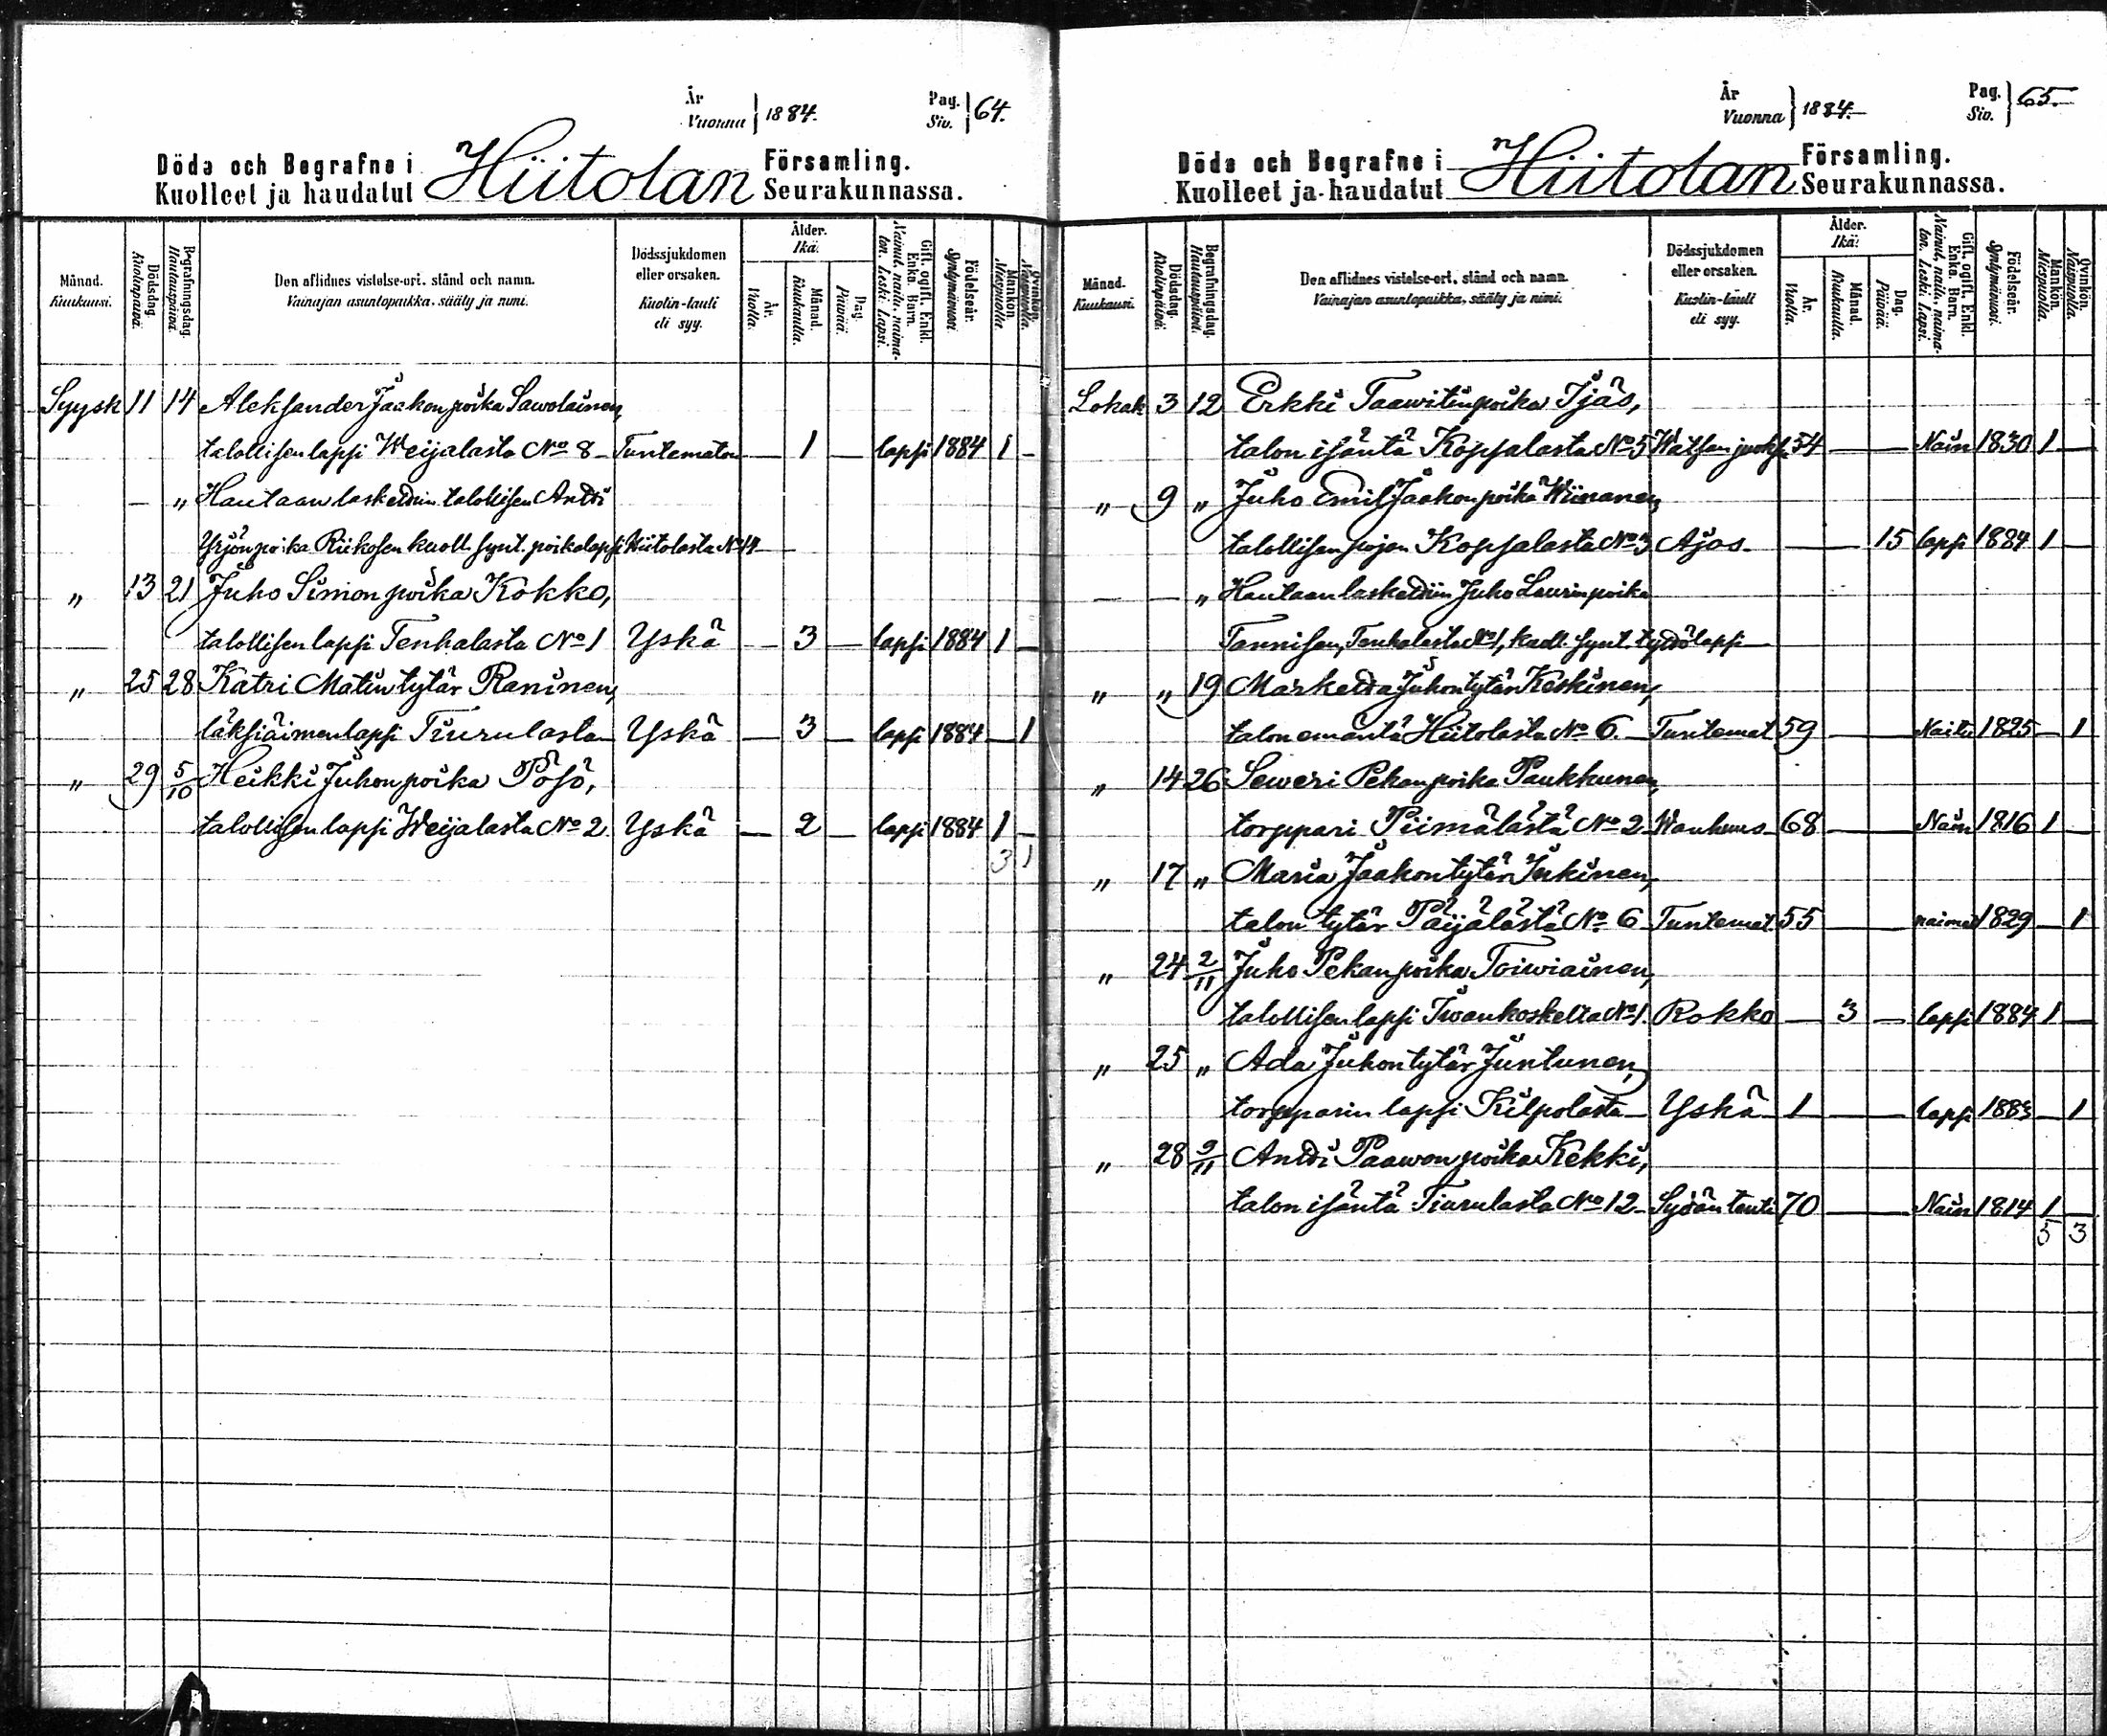 År
Vuonna } 1884.
Pag.
Siv. } 64.
Döde och Begrafne i Hiitolan Församling.
Kuolleet ja haudatut Seurakunnassa.
Månad. Kuukausi.
Dödsdag. Kuolinpäivä.
Begrafningsdag. Hautauspäivä.
Den aflidnes vistelse-ort, stånd och namn.
Vainajan asuntopaikka, sääty ja nimi.
Dödssjukdomen eller orsaken.
Kuolin-tauti eli syy.
Ålder. Ikä.
År. Vuotta.
Månad. Kuukautta.
Dag. Päivää.
Gift, ogift, Enkl. Enka. Barn.
Nainut, naitu, naimaton. Leski. Lapsi.
Födelseår. Syntymävuosi.
Mankön. Miespuolia.
Qvinkön. Naispuolia.
Syysk 11 14 Aleksander Jaakonpoika Sawolainen,
talollisen lapsi Weijalasta No 8 – Tuntematon – 1 – lapsi 1884 1 –
– „ Hautaan laskettiin talollisen Antti
Yrjönpoika Riikosen kuoll. synt. poikalapsi Hiitolasta No 14
„ 13 21 Juho Simonpoika Kokko,
talollisen lapsi Tenhalasta No 1 Yskä – 3 – lapsi 1884 1 –
„ 25 28 Katri Matintytär Raninen,
läksiäimen lapsi Tiurulasta – Yskä – 3 – lapsi 1884 – 1
„ 29 5/10 Heikki Juhonpoika Pösö,
talollisen lapsi Weijalasta No 2 Yskä – 2 – lapsi 1884 1 –
3 1
År
Vuonna } 1884.
Pag.
Siv. } 65.
Döde och Begrafne i Hiitolan Församling.
Kuolleet ja haudatut Seurakunnassa.
Månad. Kuukausi.
Dödsdag. Kuolinpäivä.
Begrafningsdag. Hautauspäivä.
Den aflidnes vistelse-ort, stånd och namn.
Vainajan asuntopaikka, sääty ja nimi.
Dödssjukdomen eller orsaken.
Kuolin-tauti eli syy.
Ålder. Ikä.
År. Vuotta.
Månad. Kuukautta.
Dag. Päivää.
Gift, ogift, Enkl. Enka. Barn.
Nainut, naitu, naimaton. Leski. Lapsi.
Födelseår. Syntymävuosi.
Mankön. Miespuolia.
Qvinkön. Naispuolia.
Lokak 3 12 Erkki Taawitinpoika Ijäs,
talon isäntä Kopsalasta No 5 Watsan juoks. 54 – – Nain 1830 1 –
„ 9 „ Juho Emil Jaakonpoika Wiinanen,
talollisen pojan Kopsalasta No 3 Ajos – – 15 lapsi 1884 1 –
– – „ Hautaan laskettiin Juho Laurinpoika
Tannisen, Tenhalasta No 1, kuoll. synt. tyttölapsi –
„ „ 19 Marketta Juhontytär Keskinen,
talon emäntä Hiitolasta No 6. – Tuntemat 59 – – Naitu 1825 – 1
„ 14 26 Seweri Pekanpoika Paukkunen,
torppari Piimälästä No 2. Wanhuus 68 – – Nain 1816 1 –
„ 17 „ Maria Jaakontytär Inkinen,
talon tytär Päijälästä No 6 Tuntemat 55 – – naimat 1829 – 1
„ 24 2/11 Juho Pekanpoika Toiwiainen,
talollisen lapsi Iwankoskelta No 1. Rokko – 3 – lapsi 1884 1 –
„ 25 „ Ada Juhontytär Juntunen,
torpparin lapsi Kilpolasta – Yskä 1 – – lapsi 1883 – 1
„ 28 9/11 Antti Paawonpoika Kekki,
talon isäntä Tiurulasta No 12 – Sydäntauti 70 – – Nain 1814 1 –
5 3